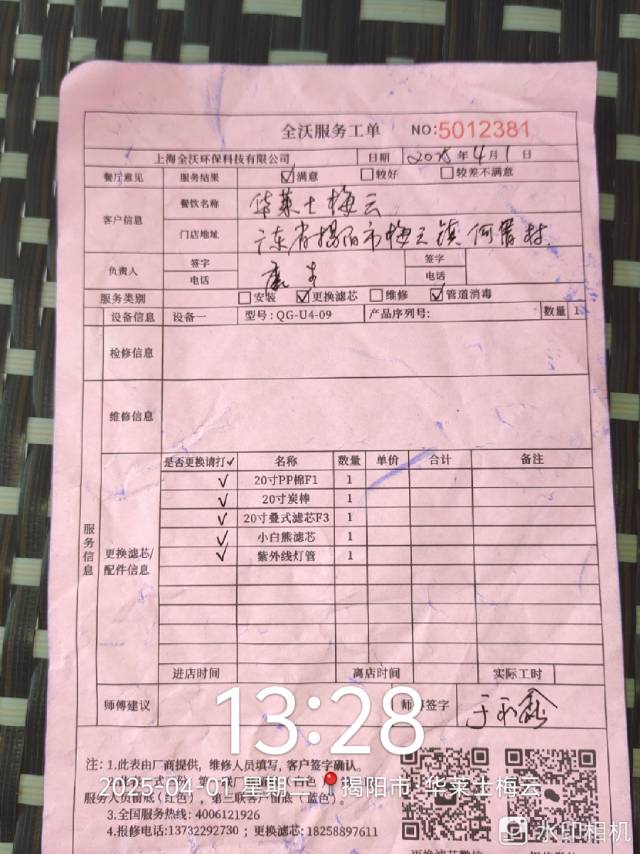 全沃服务工单 NO:5012381
上海全沃环保科技有限公司 日期 2025年4月1日
餐厅意见 服务结果 ☑满意 □较好 □较差不满意
客户信息 餐饮名称 华莱士梅云
门店地址 广东省揭阳市梅云镇何厝村
负责人 签字 签字
电话 电话
服务类别 □安装 ☑更换滤芯 □维修 ☑管道消毒
设备信息 设备一 型号:QG-U4-09 产品序列号: 数量 1
检修信息
维修信息
服务信息
更换滤芯/配件信息
是否更换请打✓ 名称 数量 单价 合计 备注
✓ 20寸PP棉F1 1
✓ 20寸炭棒 1
✓ 20寸叠式滤芯F3 1
✓ 小白熊滤芯 1
✓ 紫外线灯管 1
进店时间 离店时间 实际工时
师傅建议 师傅签字
13:28
注: 1.此表由厂商提供，维修人员填写，客户签字确认。
2025-04-01 星期二 揭阳市·华莱士梅云
服务人员留底（红色），第三联客户留底（蓝色）。
3.全国服务热线: 4006121926
4.报修电话:13732292730 ; 更换滤芯: 18258897611
水印相机